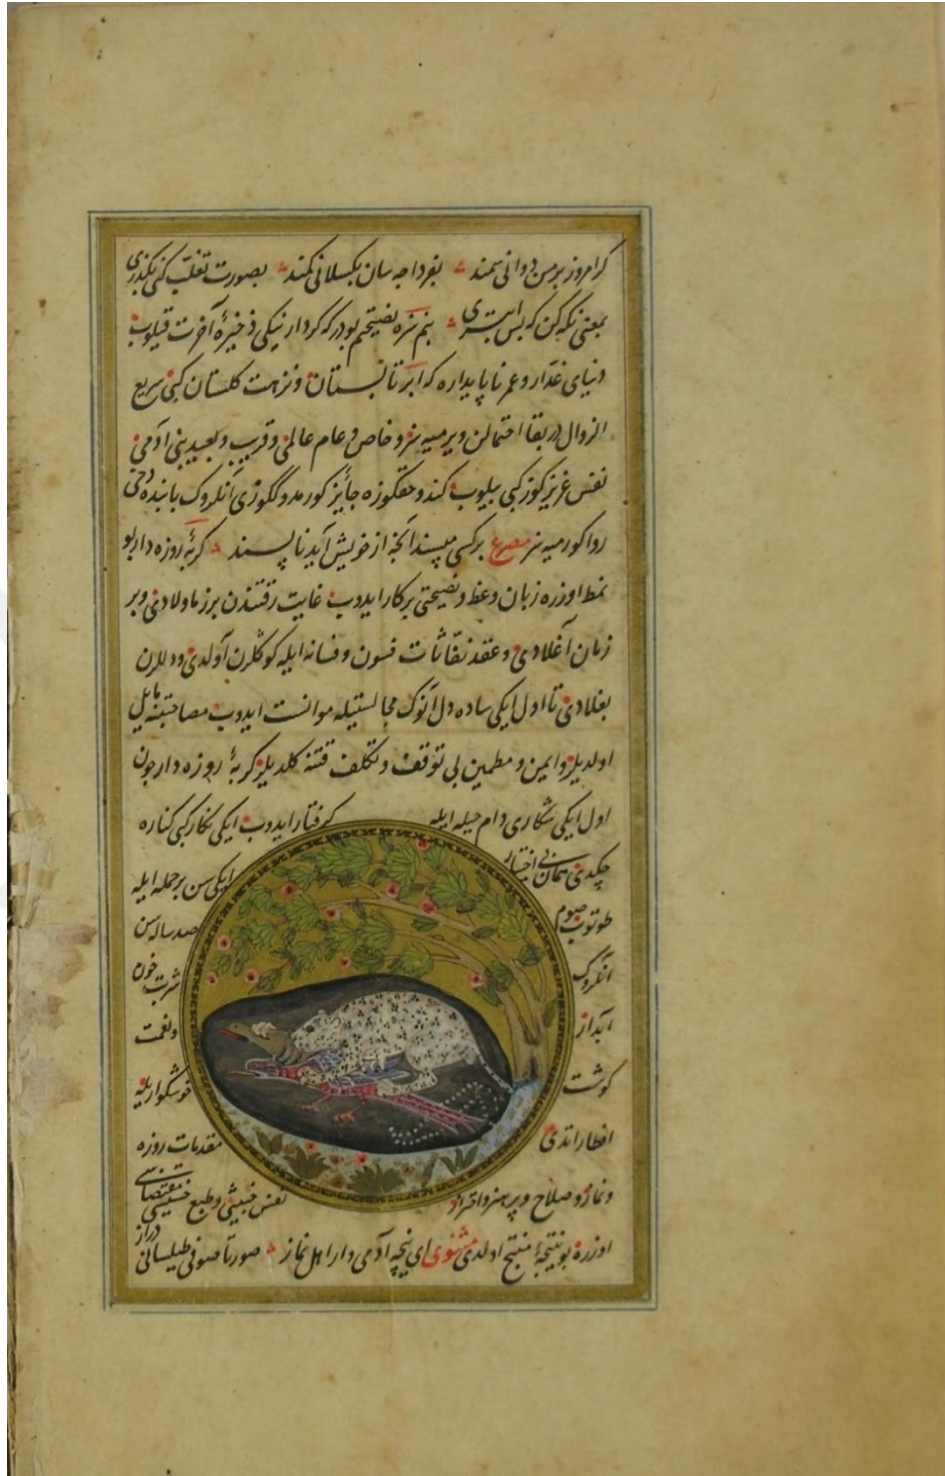 کر امروز بر من دوانی سمند بفردا چه سان بکسلانی کمند بصورت تغلب کنی بگذری
بمعنی نگه کن که بس ابتری بنم سزه نصیحتم بودر که کردار نیکی ذخیرهٔ آخرت قیلوب
دنیای غدار و عمر ناپایداره که ابر تابستان و نزهت کلستان کبی سریع
الزوال در بقا احتمالن ویرمیه سز و خاص و عام عالمی و قریب و بعید بنی آدمی
نفس عزیزکوز کبی بیلوب کندو حقکوزه جایز کورمدوککوزی انلروک باننده دخی
روا کورمیه سز مصرع بر کسی مپسند آنچه از خویش آید ناپسند کربهٔ روزه دار بو
نمط اوزره زبان وعظ و نصیحتی برکار ایدوب غایت رقتندن برزماولادی وبر
زمان آغلادی و عقد نفاثات فسون و فسانه ایله کوکللرن آولدی و دللرن
بغلادی تا اول ایکی ساده دل آنوک مجالستیله موانست ایدوب مصاحبتنه مایل
اولدیلر و ایمن و مطمین بی توقف و تکلف قتنه کلدیلر کربهٔ روزه دار چون
اول ایکی شکاری دام حیله ایله کرفتار ایدوب ایکی نکار کبی کناره
چکدی همان بی اختیار ایکی سن بر حمله ایله
طوتوب صوم صد ساله سن
انلروک شربت خون
آبدار ونعمت
کوشت خوشکوار یله
افطار اتدی مقدمات روزه
ونماز و صلاح و پرهیز و افتراد نفس خبیثی و طبع خسیسی مقتضاسی
اوزره بو نتیجهٔ منتج اولدی مثنوی ای نیجه آدمی دار اهل نماز صورتا صوفی طیلسانی دراز